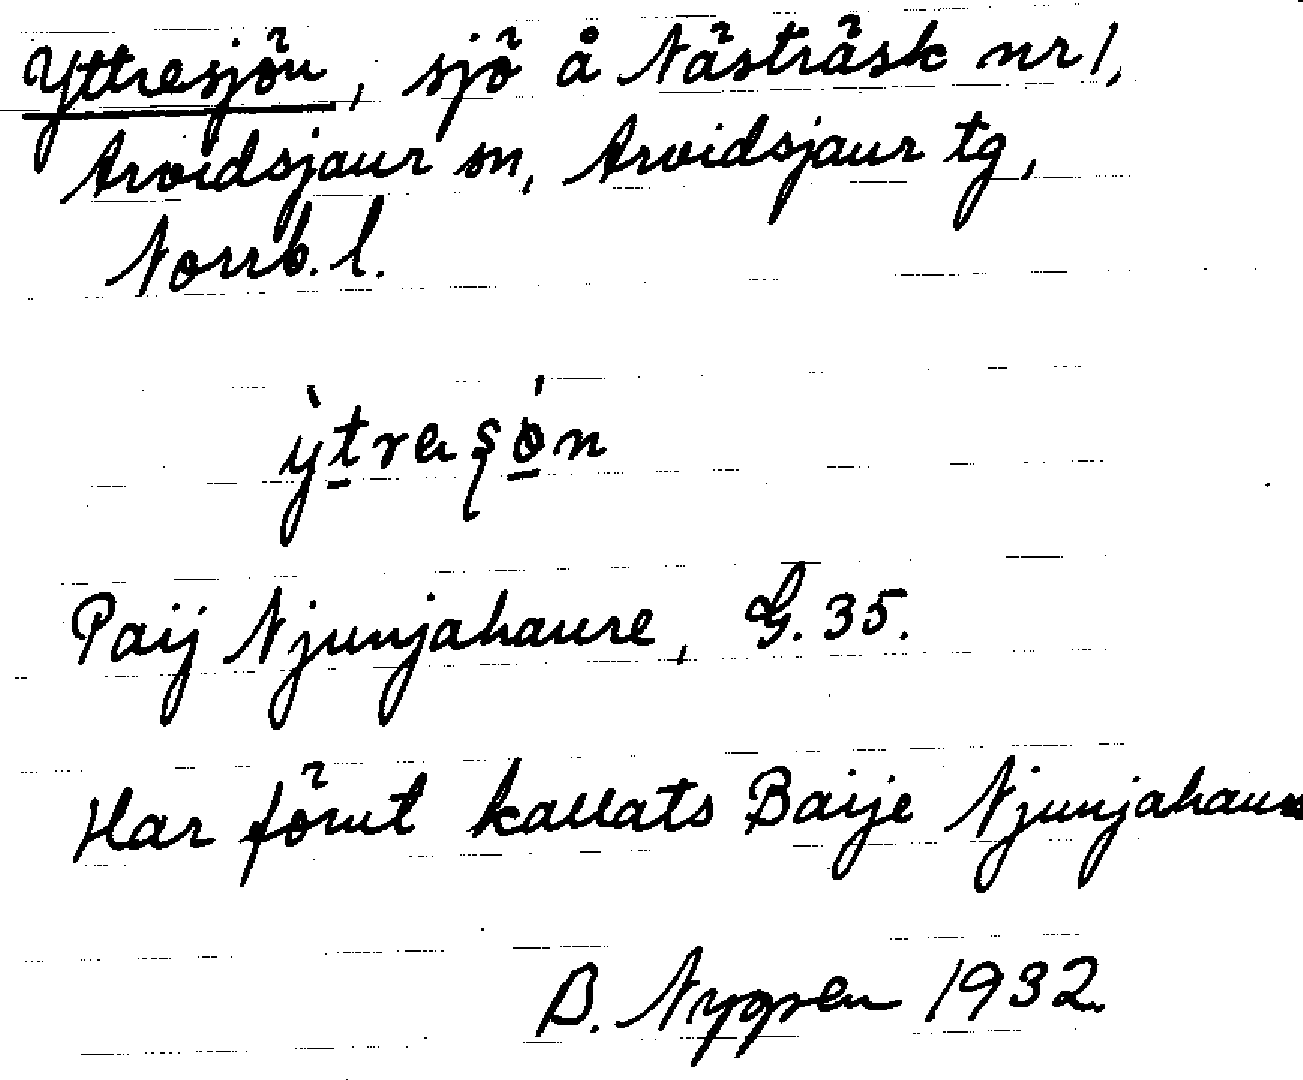 Yttresjön, sjö å Nästräsk nr 1,
Arvidsjaur sn, Arvidsjaur tg,
Norrb. l.
ỳtresón
Paij Njunjahaure, G. 35.
Har förut kallats Baije Njunjahaure
B. Nygren 1932.